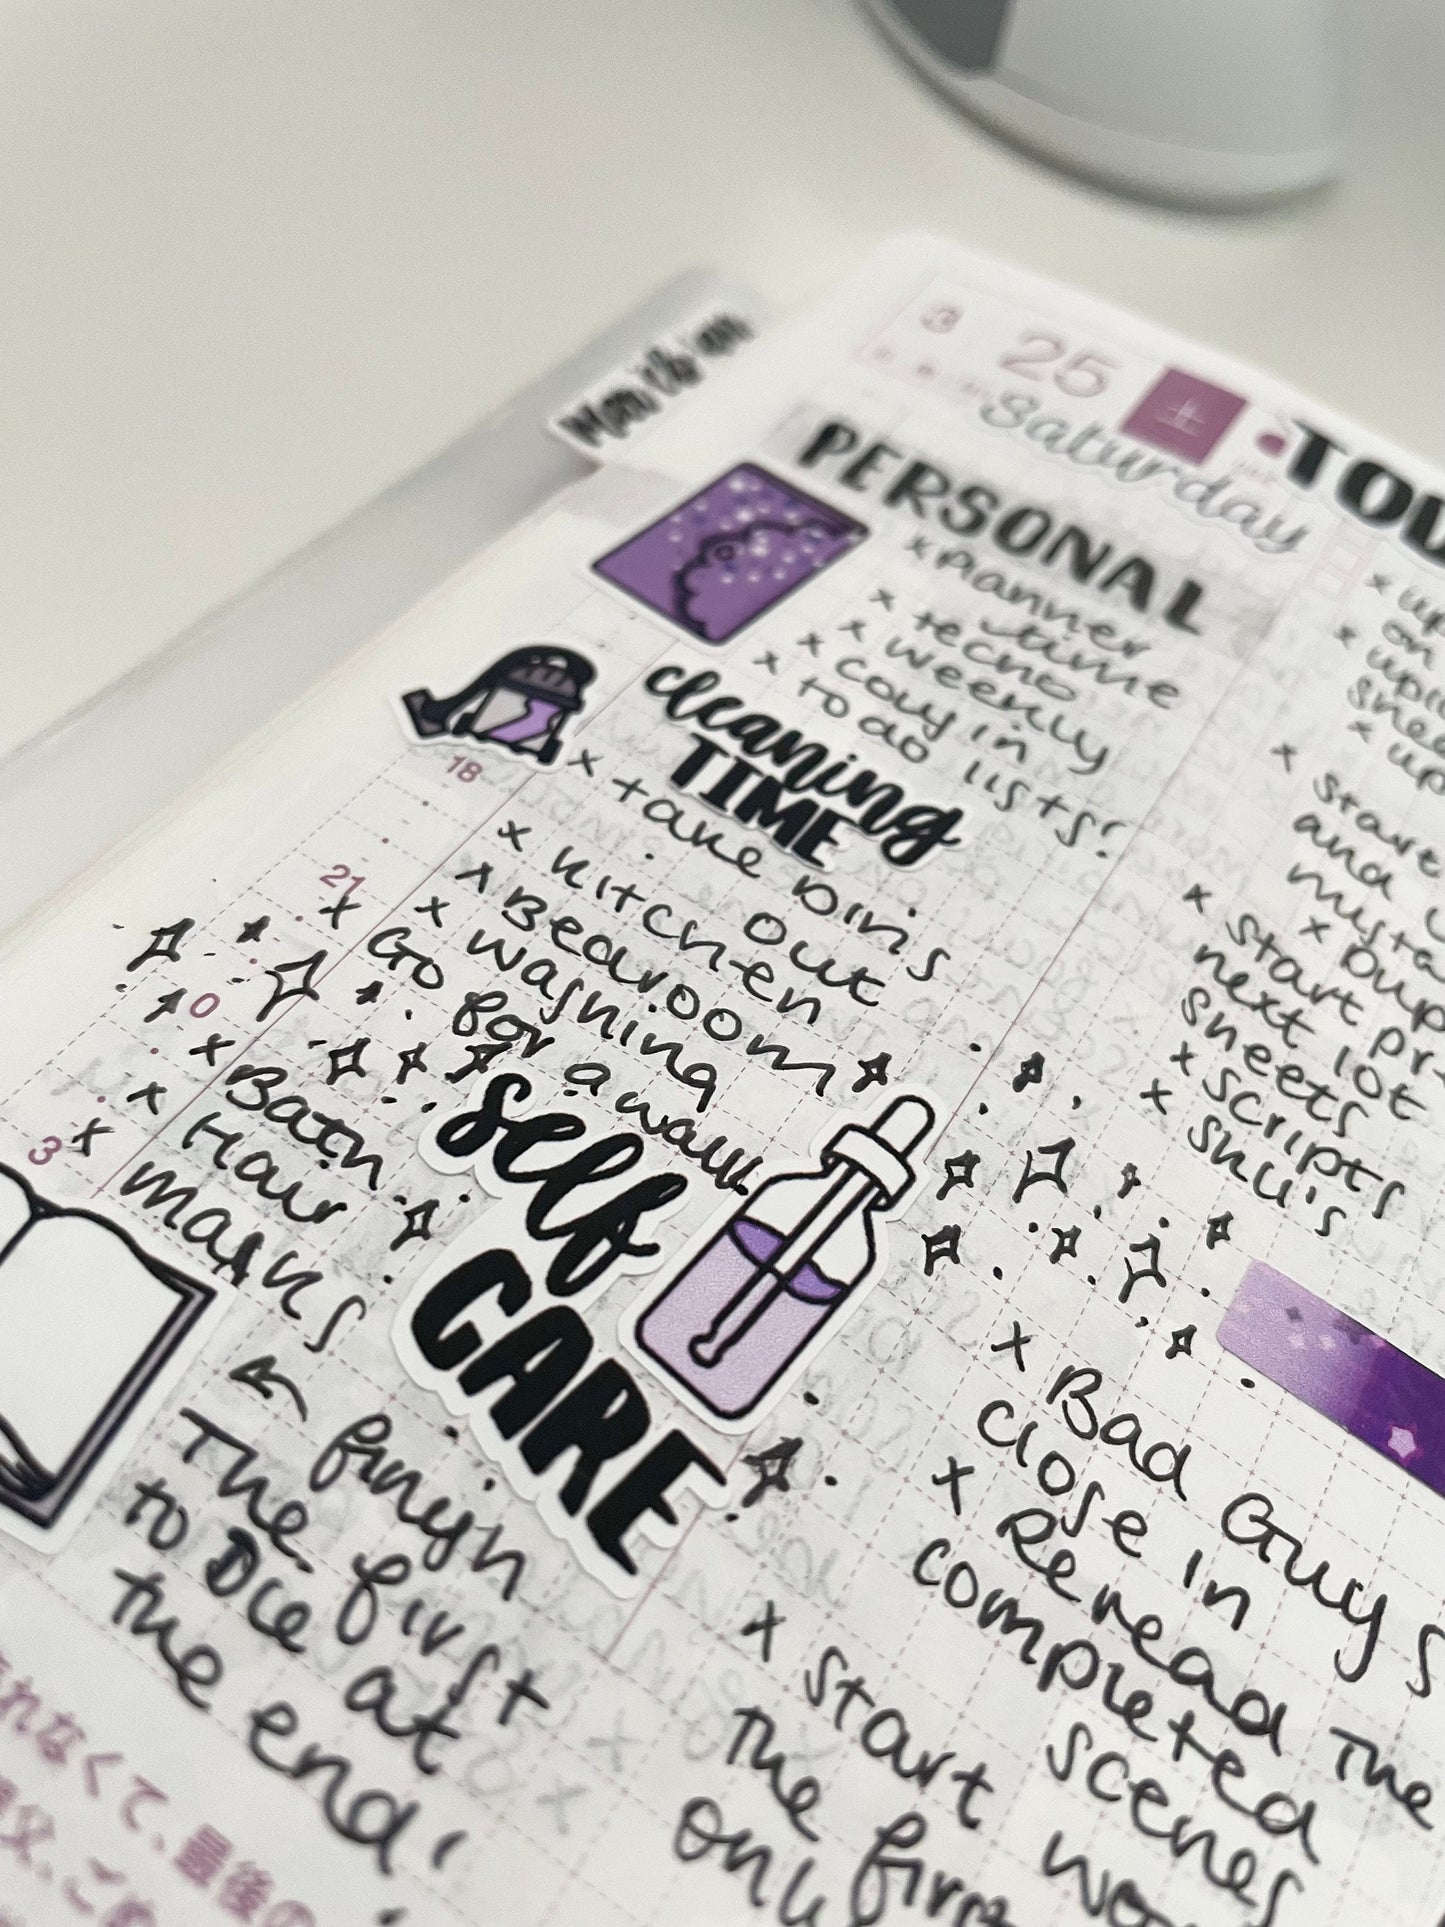 3 25 土
Saturday
PERSONAL
x Planner
time
x techo
x weekly
x cosy in
x to do lists!
cleaning
TIME
x take bins
out
x kitchen
x Bedroom
x washing
x Go for a walk
18
21
0
3
self
CARE
x Bath
x Hair
x masks
← finish
The first
to Die at
the end!
れなくて、最後の
父、ご
x up
on
x
x up
x start
and
x Dup
x start pr
next lot
sheets
x scripts
x sku's
x Bad Guys
close in
x Reread the
completed
scenes
x start
the first
only